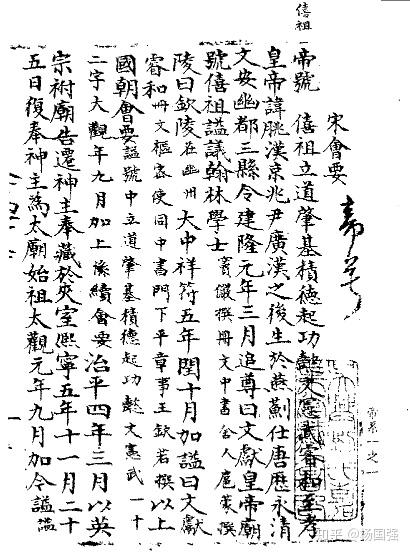 僖祖
帝系一之一
宋會要
帝號 僖祖立道肇基積德起功懿文憲武睿和至孝
皇帝諱朓漢京兆尹廣漢之後生於燕薊仕唐歷永清
文安幽都三縣令建隆元年三月追尊曰文獻皇帝廟
號僖祖謚議翰林學士竇儼撰冊文中書舍人扈蒙撰
陵曰欽陵在幽州大中祥符五年閏十月加謚曰文獻
睿和冊文樞密使同中書門下平章事王欽若撰以上
國朝會要謚號中立道肇基積德起功懿文憲武一十
二字大觀年九月加上後續會要治平四年三月以英
宗祔廟告遷神主奉藏於夾室熙寧五年十一月二十
五日復奉神主為太廟始祖太觀元年九月加今謚謚
知乎 @杨国强